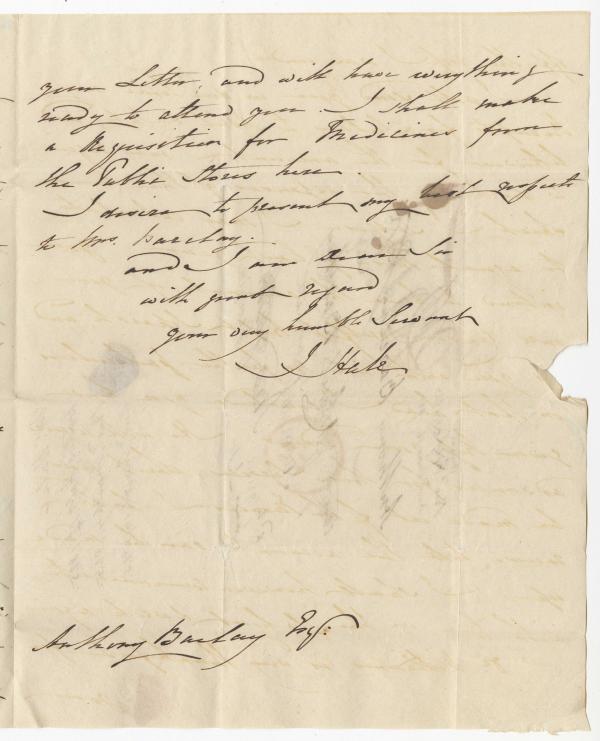 your Letter, and will have everything
ready to attend you. I shall make
a Requisition for Medicines from
the Public Stores here.
I desire to present my best respects
to Mrs. Barclay.
and I am Dear Sir
with great regard
your very humble Servant
J Hale
Anthony Barclay Esqr.